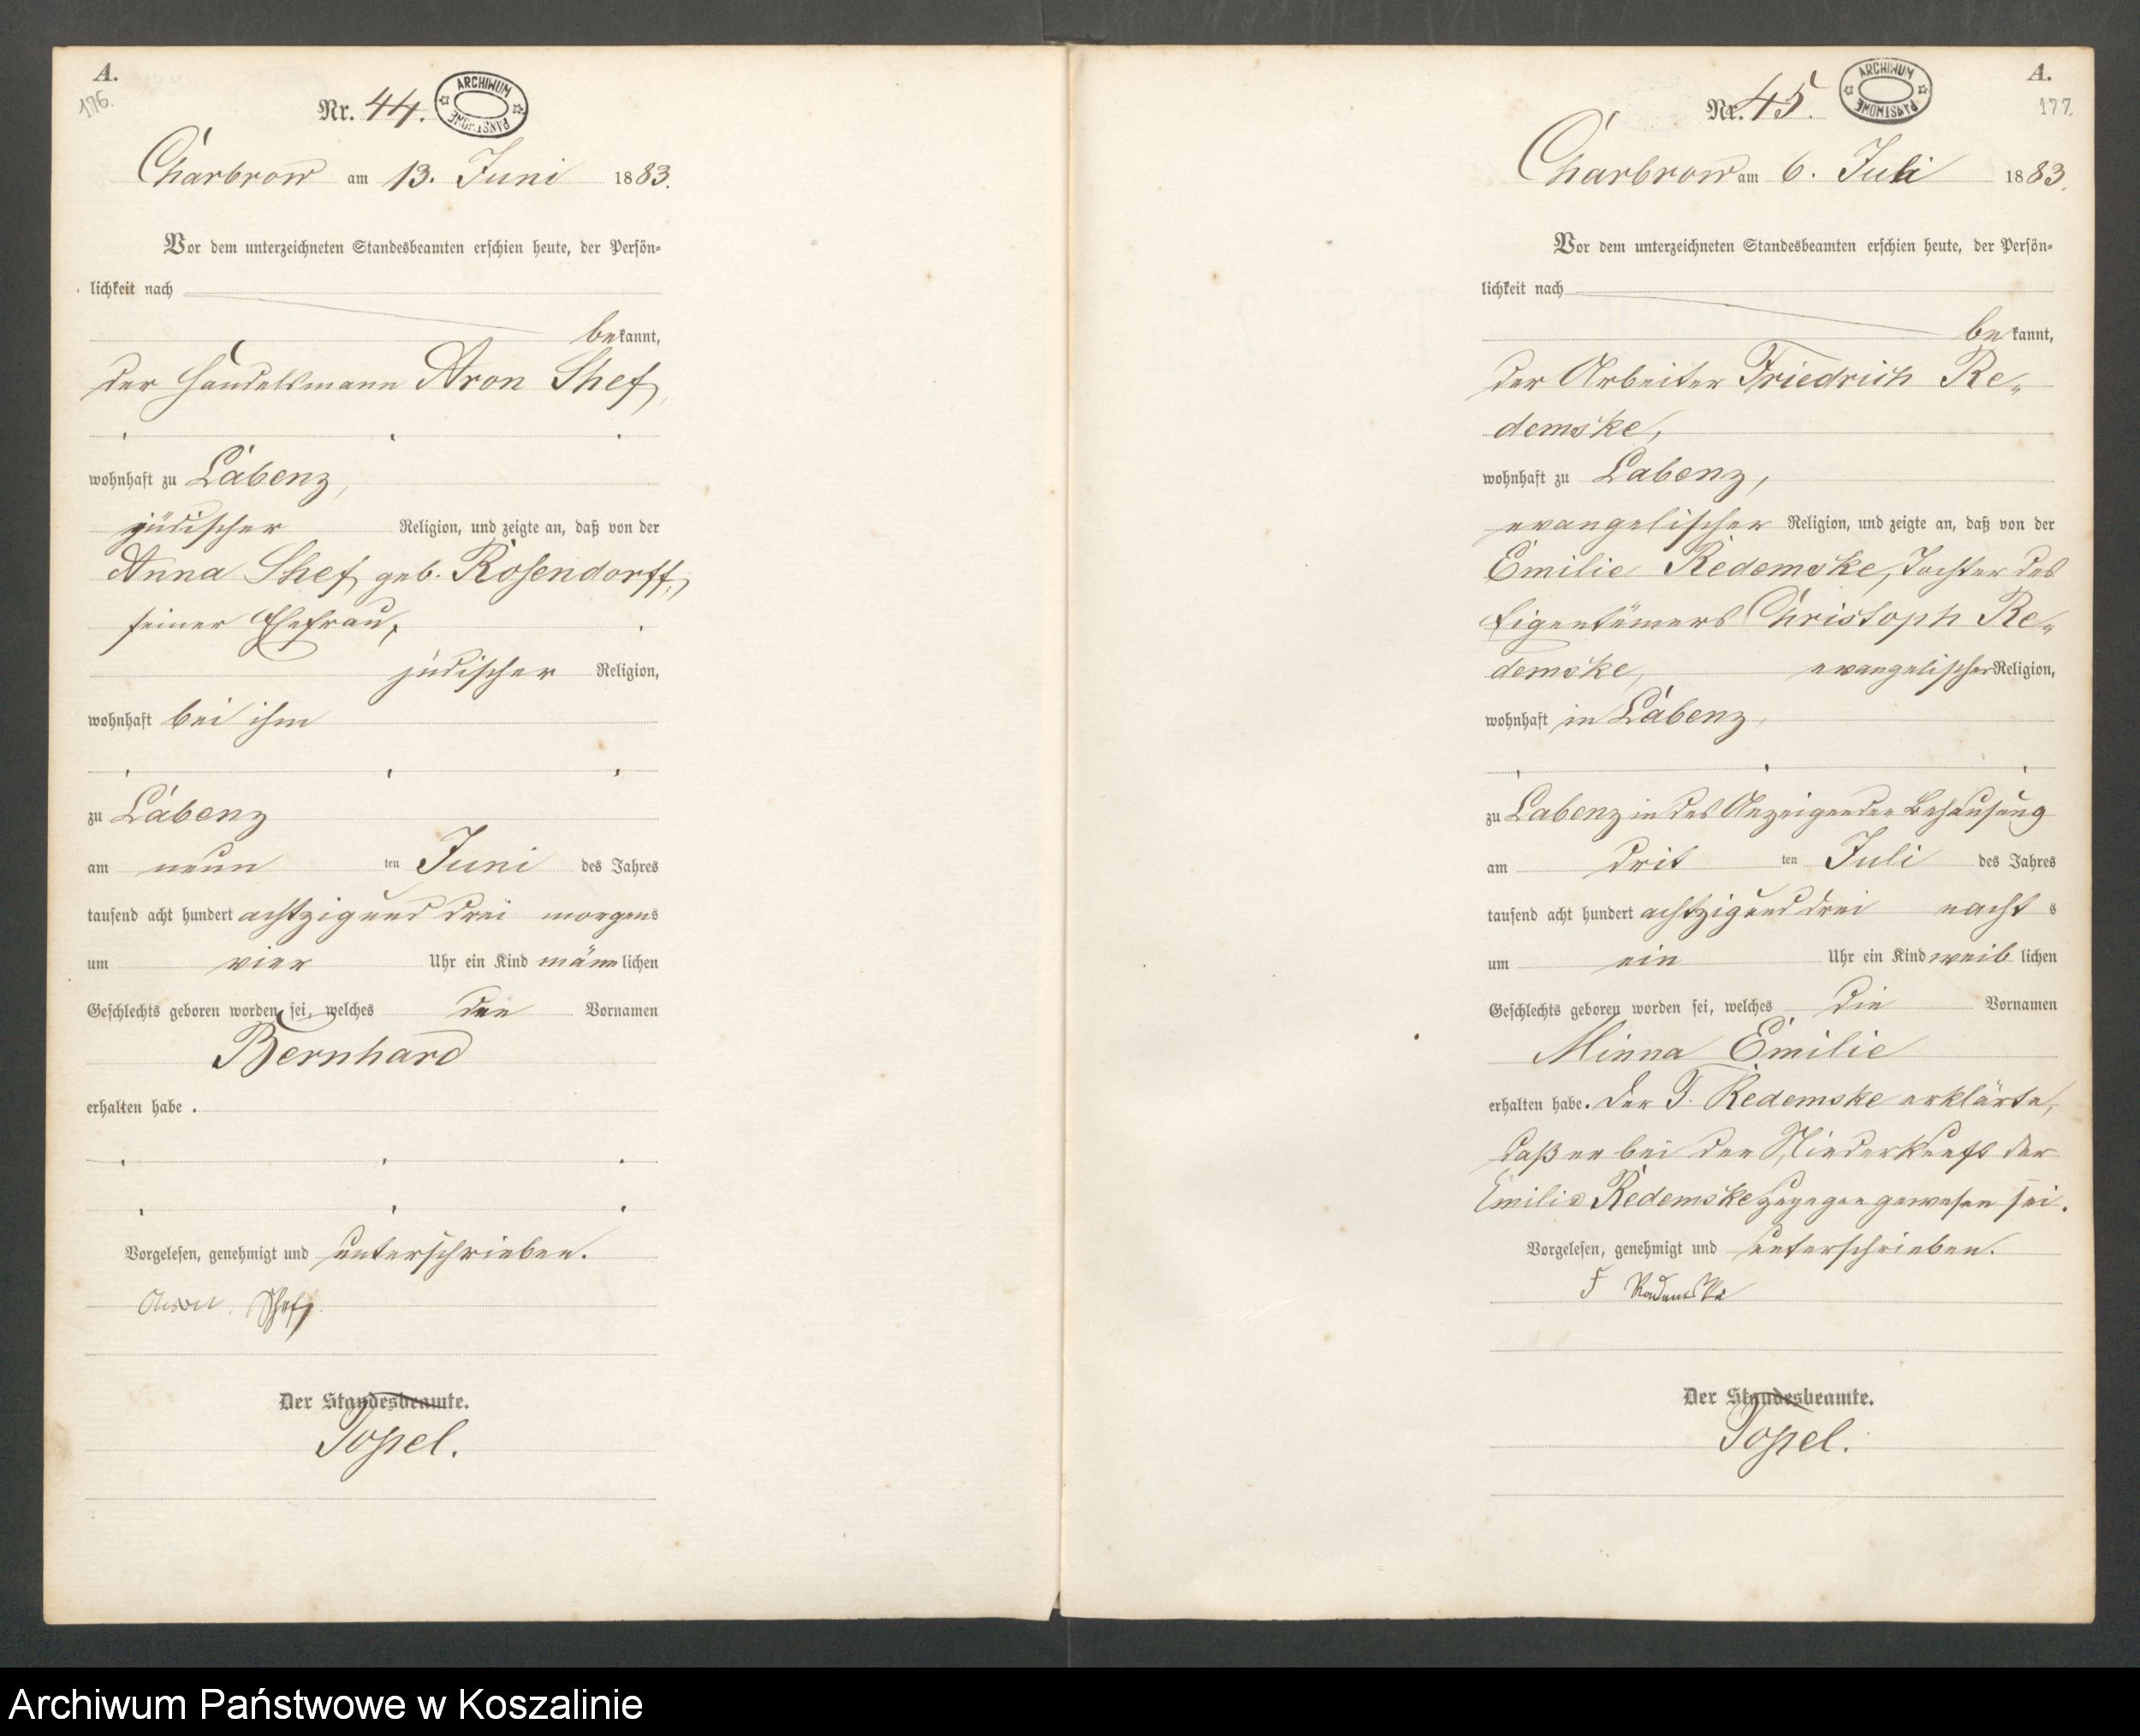 A.
176.
Nr. 44.
ARCHIWUM PAŃSTWOWE
Charbrow am 13. Juni 1883.
Vor dem unterzeichneten Standesbeamten erschien heute, der Persön-
lichkeit nach
bekannt,
der Handelsmann Aron Shef,
wohnhaft zu Labenz,
jüdischer Religion, und zeigte an, daß von der
Anna Shef, geb. Rosendorff,
seiner Ehefrau,
jüdischer Religion,
wohnhaft bei ihm
zu Labenz
am neun ten Juni des Jahres
tausend acht hundert achtzig und drei morgens
um vier Uhr ein Kind männlichen
Geschlechts geboren worden sei, welches den Vornamen
Bernhard
erhalten habe.
Vorgelesen, genehmigt und unterschrieben.
Aron Shef
Der Standesbeamte.
Topel.
A.
177.
Nr. 45.
ARCHIWUM PAŃSTWOWE
Charbrow am 6. Juli 1883.
Vor dem unterzeichneten Standesbeamten erschien heute, der Persön-
lichkeit nach
bekannt,
der Arbeiter Friedrich Re-
demske,
wohnhaft zu Labenz,
evangelischer Religion, und zeigte an, daß von der
Emilie Redemske, Tochter des
Eigentümers Christoph Re-
demske, evangelischer Religion,
wohnhaft in Labenz,
zu Labenz in des Anzeigenden Behausung
am drit ten Juli des Jahres
tausend acht hundert achtzig und drei nachts
um ein Uhr ein Kind weiblichen
Geschlechts geboren worden sei, welches die Vornamen
Minna Emilie
erhalten habe. Der F. Redemske erklärte,
daß er bei der Niederkunft der
Emilie Redemske zugegen gewesen sei.
Vorgelesen, genehmigt und unterschrieben.
F Redemske
Der Standesbeamte.
Topel.
Archiwum Państwowe w Koszalinie